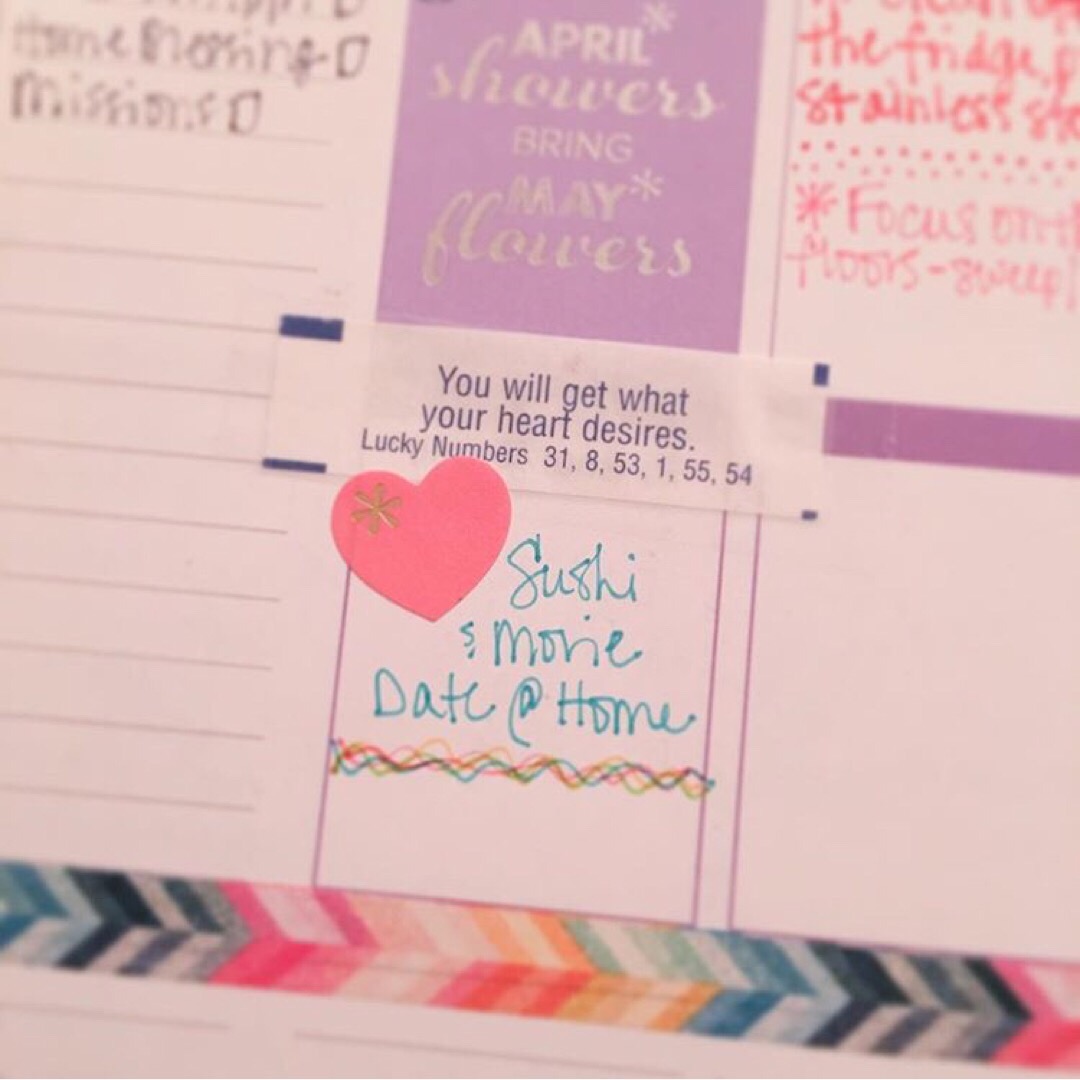 Home Blessing
Missions
APRIL
showers
BRING
MAY
flowers
the fridge,
stainless
* Focus on
floors - sweep
You will get what
your heart desires.
Lucky Numbers 31, 8, 53, 1, 55, 54
Sushi
& Movie
Date @ Home